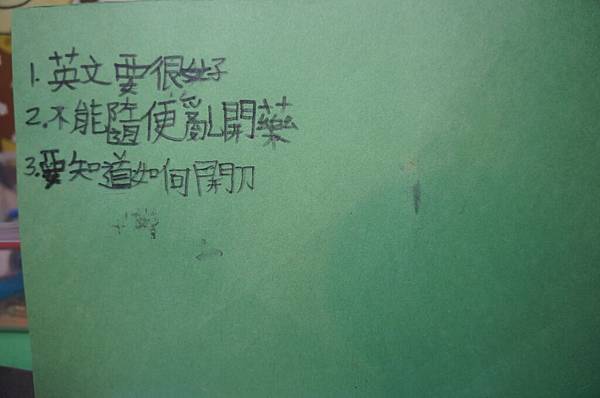 1.英文要很好
2.不能隨便亂開藥
3.要知道如何開刀